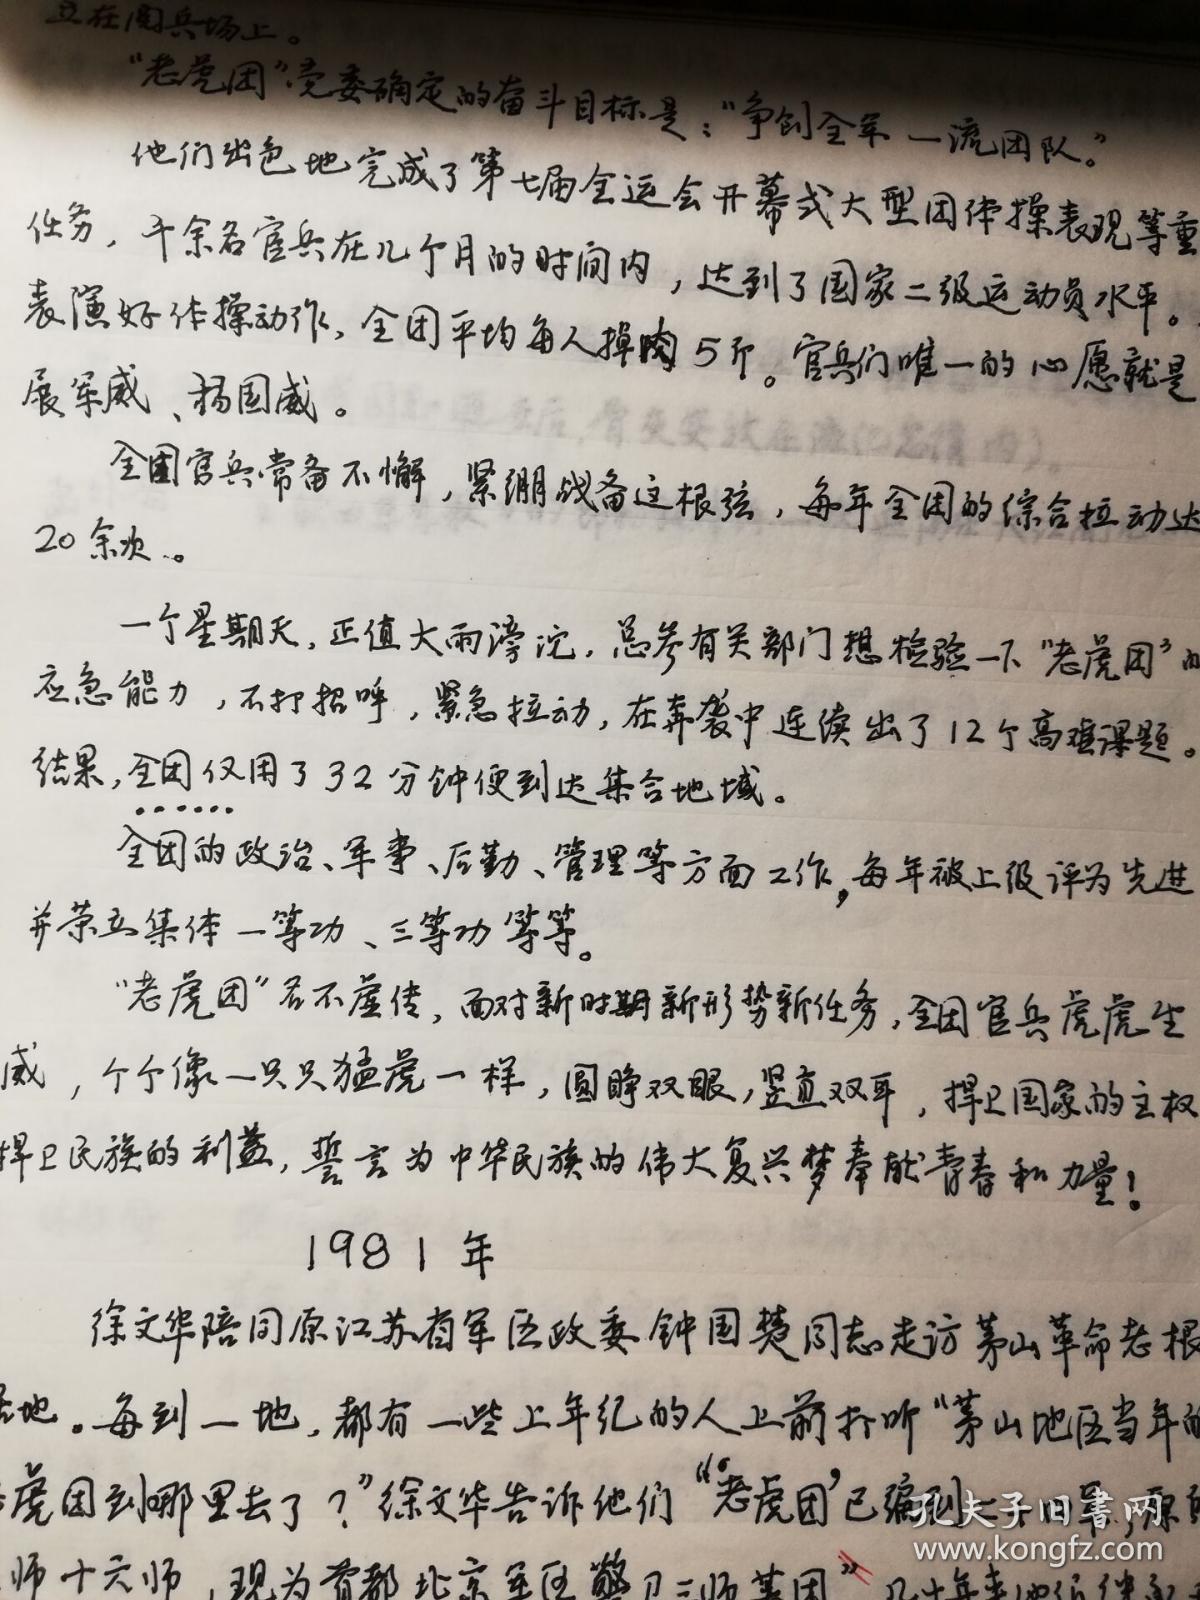 立在阅兵场上。
“老虎团”党委确定的奋斗目标是：“争创全军一流团队。”
他们出色地完成了第七届全运会开幕式大型团体操表现等重
任务，千余名官兵在几个月的时间内，达到了国家二级运动员水平。
表演好体操动作，全团平均每人掉肉5斤。官兵们唯一的心愿就是
展军威、扬国威。
全团官兵常备不懈，紧绷战备这根弦，每年全团的综合拉动达
20余次。
一个星期天，正值大雨滂沱，总参有关部门想检验一下“老虎团”的
应急能力，不打招呼，紧急拉动，在奔袭中连续出了12个高难课题。
结果，全团仅用了32分钟便到达集合地域。
......
全团的政治、军事、后勤、管理等方面工作，每年被上级评为先进
并荣立集体一等功、三等功等等。
“老虎团”名不虚传，面对新时期新形势新任务，全团官兵虎虎生
威，个个像一只只猛虎一样，圆睁双眼，竖直双耳，捍卫国家的主权
捍卫民族的利益，誓言为中华民族的伟大复兴梦奉献青春和力量！
1981年
徐文华陪同原江苏省军区政委钟国楚同志走访茅山革命老根
据地。每到一地，都有一些上年纪的人上前打听“茅山地区当年的
虎团到哪里去了？”徐文华告诉他们“‘老虎团’已编到二十四军，原
师十六师，现为首都北京军区警卫三师某团”
孔夫子旧书网
www.kongfz.com